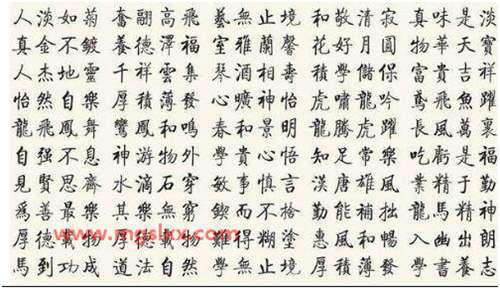 人淡如菊 奮翮高飛 藝無止境 和敬清寂 真味是淡
真金不鍍 養德澤福 室雅蘭馨 花好月圓 物華天寶
人杰地靈 千祥雲集 琴酒相壽 積學儲保 富貴吉祥
怡然自樂 厚積薄發 曠神怡 虎嘯龍吟 鳶飛魚躍
龍飛鳳舞 鸞鳳和鳴 春和景明 龍騰虎躍 長風萬裏
自强不息 神游物外 學貴心悟 知足常樂 吃虧是福
見賢思齊 水滴石穿 敏事慎言 漢唐雄風 業精于勤
爲善最樂 其樂無窮 鍥而不捨 勤能補拙 龍馬精神
厚德載物 厚德載物 難得糊塗 惠風和暢 入幽出朗
馬到功成 道法自然 學無止境 厚積薄發 學養志
www.mgslxx.com